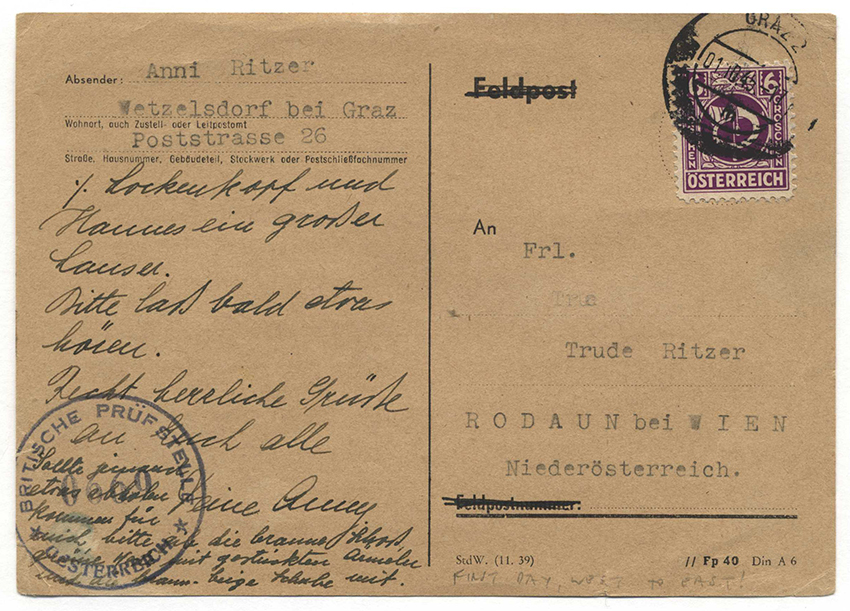 Absender: Anni Ritzer
Wetzelsdorf bei Graz
Wohnort, auch Zustell- oder Leitpostamt
Poststrasse 26
Straße, Hausnummer, Gebäudeteil, Stockwerk oder Postschließfachnummer
⁒ Lockenkopf und
Hannes ein großer
Lauser.
Bitte laß bald etwas
hören.
Recht herzliche Grüße
an Euch alle
Deine Anny
Sollte jemand
etwas abholen
kommen für
mich, bitte die braunen
mit gestickten Ärmeln
und die braun-beige mit.
BRITISCHE PRÜFSTELLE
ÖSTERREICH
Feldpost
GRAZ 2
6
GROSCHEN
GROSCHEN
ÖSTERREICH
An
Frl.
Tru
Trude Ritzer
RODAUN bei WIEN
Niederösterreich.
Feldpostnummer:
StdW. (11. 39)
// Fp 40 Din A 6
FIRST DAY, WEST TO EAST!